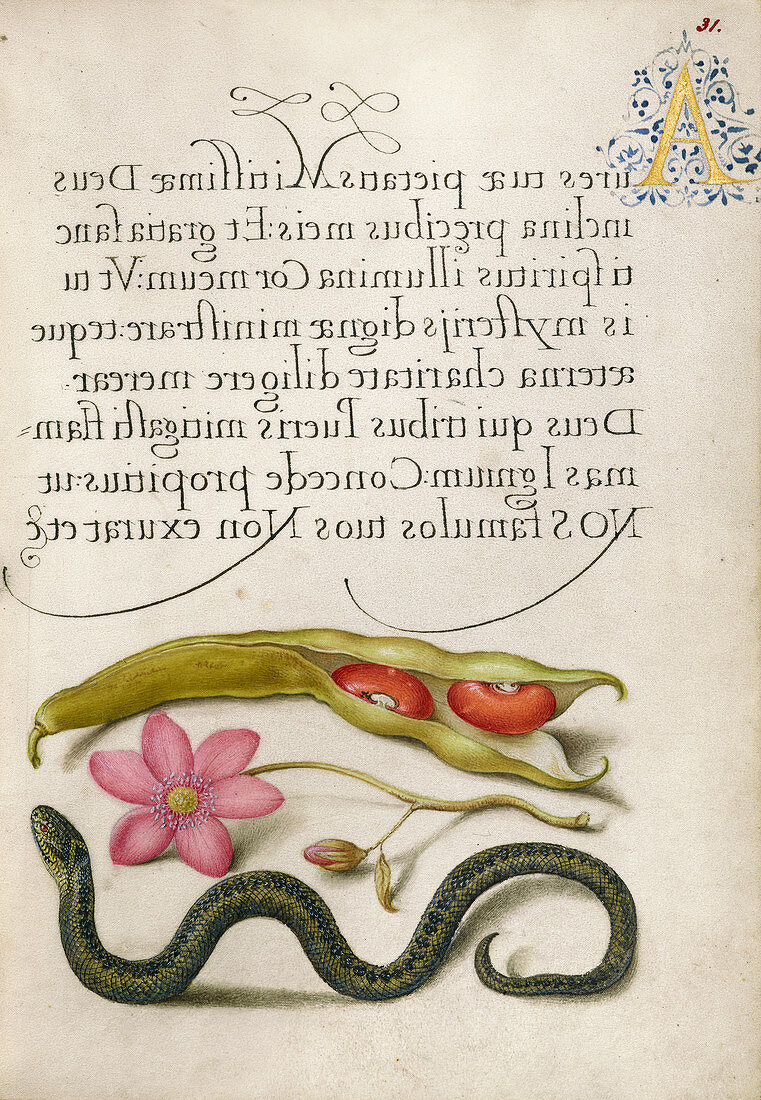 31.
Aures tuæ pietatis Mitiſſimæ Deus
inclina pręcibus meis: Et gratia ſanc
ti ſpiritus illumina Cor meum: Vt tu
is myſterijs dignæ miniſtrare: teque
æterna charitate diligere merear.
Deus qui tribus Pueris mitigaſti flam=
mas Ignium: Concede propitius: ut
NOS famulos tuos Non exurat etc